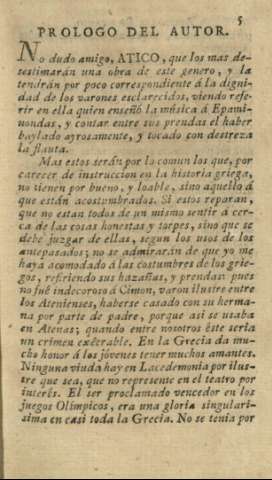 5
PROLOGO DEL AUTOR.
No dudo amigo, ATICO, que los mas de-
sestimarán una obra de este genero, y la
tendrán por poco correspondiente á la digni-
dad de los varones esclarecidos, viendo refe-
rir en ella quien enseñó la música á Epami-
nondas, y contar entre sus prendas el haber
baylado ayrosamente, y tocado con destreza
la flauta.
Mas estos serán por lo comun los que, por
carecer de instruccion en la historia griega,
no tienen por bueno, y loable, sino aquello á
que están acostumbrados. Si estos reparan,
que no están todos de un mismo sentir á cer-
ca de las cosas honestas y torpes, sino que se
debe juzgar de ellas, segun los usos de los
antepasados; no se admirarán de que yo me
haya acomodado á las costumbres de los grie-
gos, refiriendo sus hazañas, y prendas: pues
no fué indecoroso á Cimon, varon ilustre entre
los Atenienses, haberse casado con su herma-
na por parte de padre, porque asi se usaba
en Atenas; quando entre nosotros éste seria
un crimen exêcrable. En la Grecia da mu-
cho honor á los jóvenes tener muchos amantes.
Ninguna viuda hay en Lacedemonia por ilus-
tre que sea, que no represente en el teatro por
interés. El ser proclamado vencedor en los
juegos Olímpicos, era una gloria singularí-
sima en casi toda la Grecia. No se tenia por